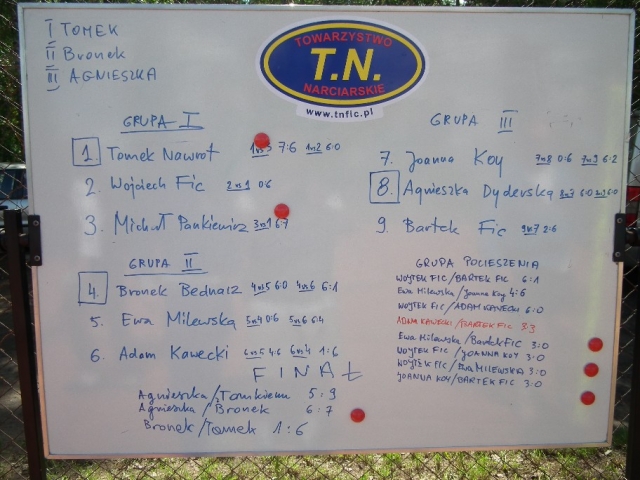 I TOMEK
II Bronek
III AGNIESZKA
TOWARZYSTWO
T.N.
NARCIARSKIE
www.tnfic.pl
GRUPA I
1. Tomek Nawrot 7:6 1vs2 6:0
2. Wojciech Fic 2vs1 0:6
3. Michał Pankiewicz 3vs1 6:7
GRUPA II
4. Bronek Bednarz 4vs5 6:0 4vs6 6:1
5. Ewa Milewska 5vs4 0:6 5vs6 6:4
6. Adam Kawecki 6vs5 4:6 6vs4 1:6
FINAŁ
Agnieszka/Tomkiem 5:9
Agnieszka/Bronek 6:7
Bronek/Tomek 1:6
GRUPA III
7. Joanna Koy 7vs8 0:6 7vs9 6:2
8. Agnieszka Dyderska 8vs7 6:0 6:0
9. Bartek Fic 9vs7 2:6
GRUPA POCIESZENIA
WOJTEK FIC/BARTEK FIC 6:1
Ewa Milewska/Joanna Koy 4:6
WOJTEK FIC/ADAM KAWECKI 6:0
ADAM KAWECKI/BARTEK FIC 3:3
Ewa Milewska/Bartek FIC 3:0
WOJTEK FIC/JOANNA KOY 3:0
WOJTEK FIC/EWA MILEWSKA 3:0
JOANNA KOY/BARTEK FIC 3:0